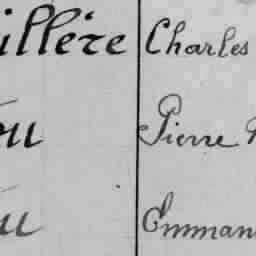 illère Charles
ou Pierre
u Emman